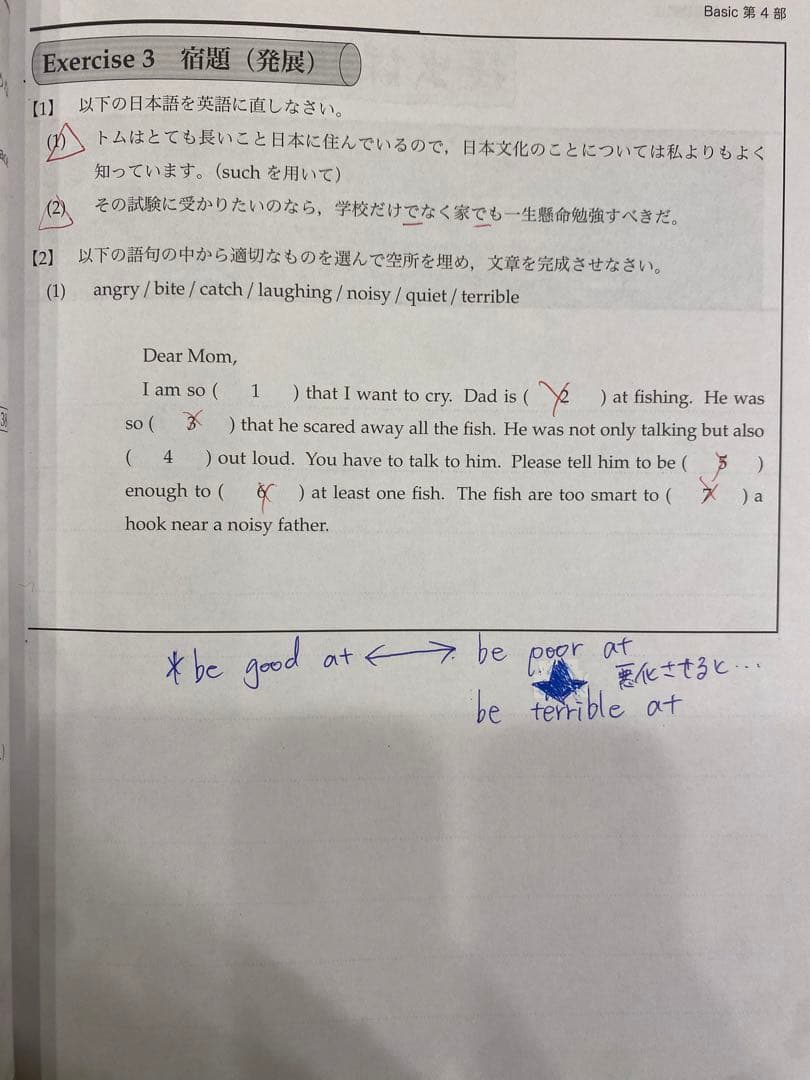 Basic 第4部
Exercise 3 宿題（発展）
【1】 以下の日本語を英語に直しなさい。
(1) トムはとても長いこと日本に住んでいるので，日本文化のことについては私よりもよく
知っています。(such を用いて)
(2) その試験に受かりたいのなら，学校だけでなく家でも一生懸命勉強すべきだ。
【2】 以下の語句の中から適切なものを選んで空所を埋め，文章を完成させなさい。
(1) angry / bite / catch / laughing / noisy / quiet / terrible
Dear Mom,
I am so ( 1 ) that I want to cry. Dad is ( 2 ) at fishing. He was
so ( 3 ) that he scared away all the fish. He was not only talking but also
( 4 ) out loud. You have to talk to him. Please tell him to be ( 5 )
enough to ( 6 ) at least one fish. The fish are too smart to ( 7 ) a
hook near a noisy father.
*be good at ⟷ be poor at
悪化させると…
be terrible at